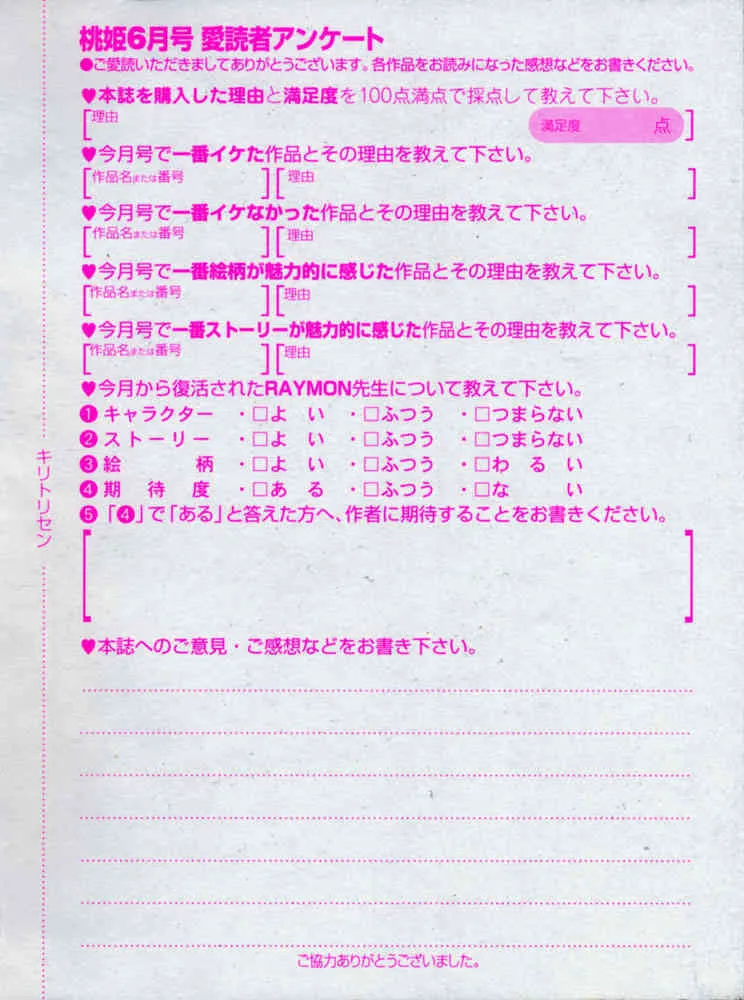 桃姫6月号 愛読者アンケート
●ご愛読いただきましてありがとうございます。各作品をお読みになった感想などをお書きください。
♥本誌を購入した理由と満足度を100点満点で採点して教えて下さい。
[理由 満足度 点]
♥今月号で一番イケた作品とその理由を教えて下さい。
[作品名または番号][理由]
♥今月号で一番イケなかった作品とその理由を教えて下さい。
[作品名または番号][理由]
♥今月号で一番絵柄が魅力的に感じた作品とその理由を教えて下さい。
[作品名または番号][理由]
♥今月号で一番ストーリーが魅力的に感じた作品とその理由を教えて下さい。
[作品名または番号][理由]
♥今月から復活されたRAYMON先生について教えて下さい。
❶キャラクター ・□よ い ・□ふつう ・□つまらない
❷ストーリー ・□よ い ・□ふつう ・□つまらない
❸絵 柄 ・□よ い ・□ふつう ・□わ る い
❹期 待 度 ・□あ る ・□ふつう ・□な い
❺「❹」で「ある」と答えた方へ、作者に期待することをお書きください。
♥本誌へのご意見・ご感想などをお書き下さい。
ご協力ありがとうございました。
キリトリセン